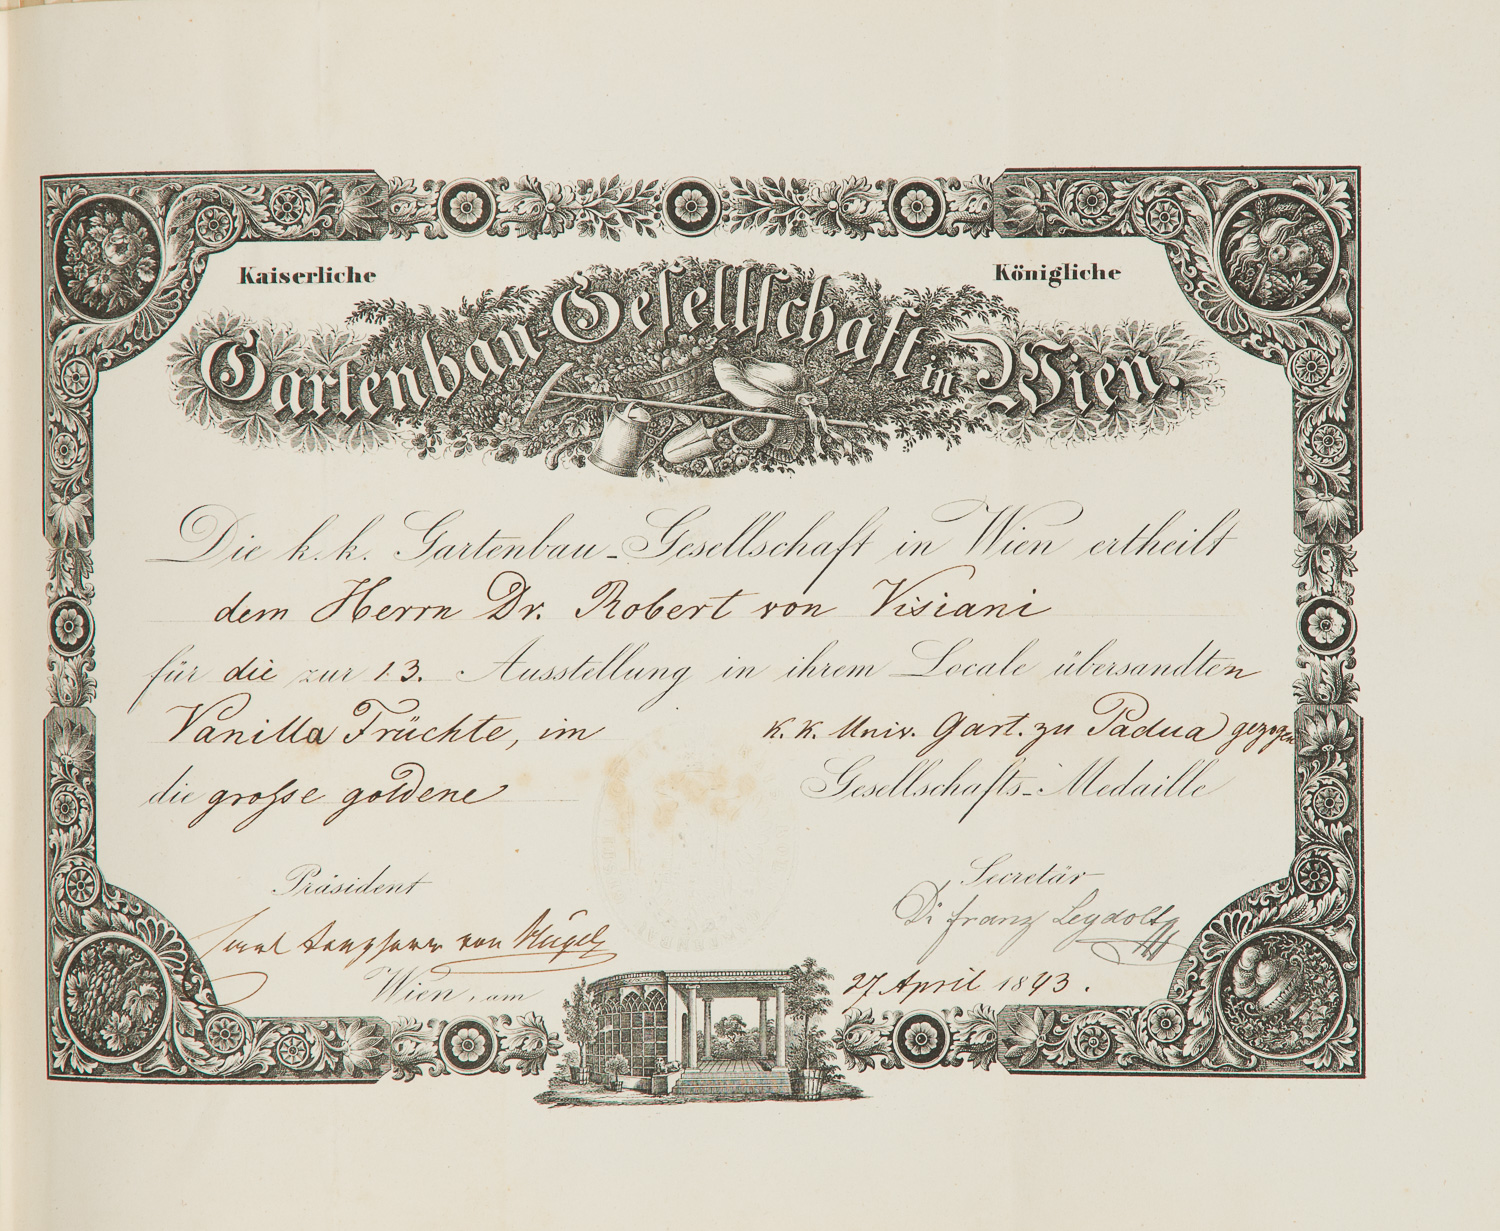 Kaiserliche Königliche
Gartenbau-Gesellschaft in Wien.
Die k. k. Gartenbau-Gesellschaft in Wien ertheilt
dem Herrn Dr. Robert von Visiani
für die zur 13. Ausstellung in ihrem Locale übersandten
Vanilla Früchte, im k. k. Univ. Gart. zu Padua gezogen
die grosse goldene Gesellschafts-Medaille
Präsident Secretär
von Hügel Dr Franz Leydolt
Wien, am 27 April 1843.